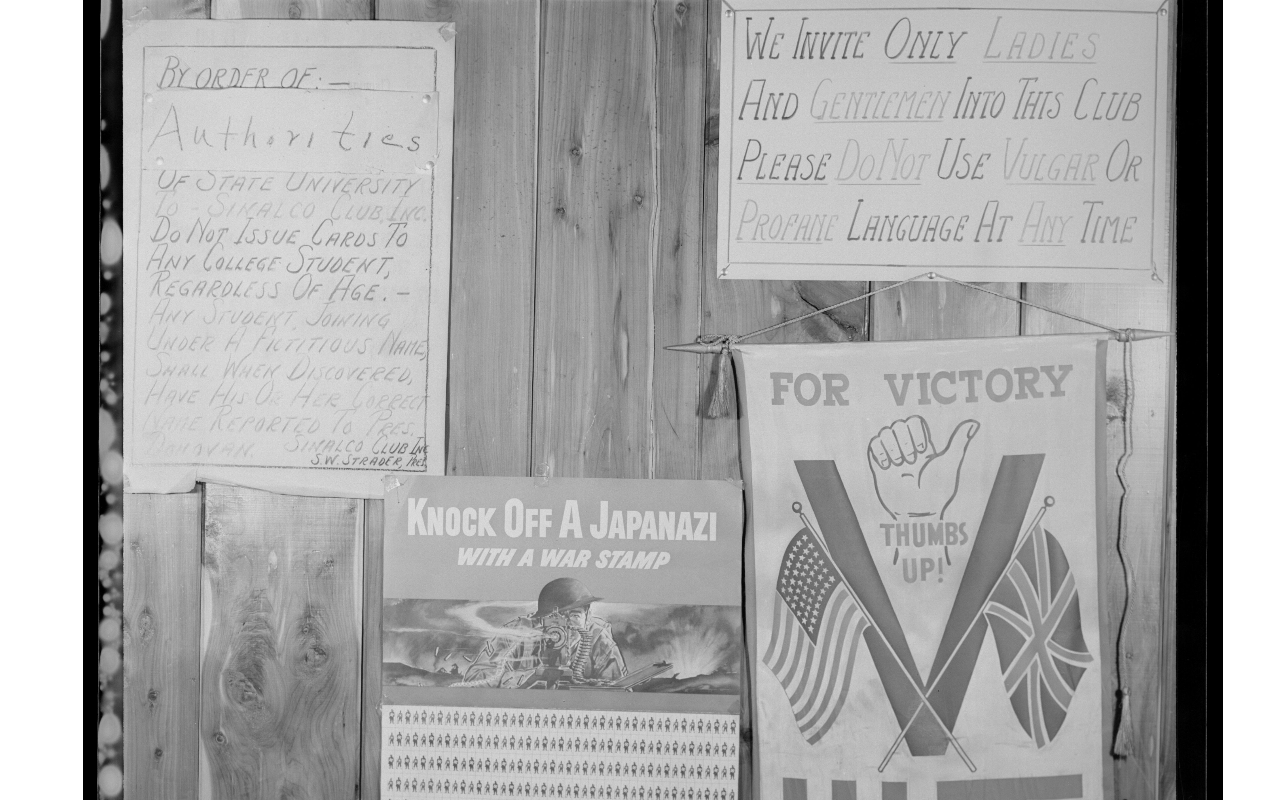 BY ORDER OF:—
Authorities
OF STATE UNIVERSITY
TO - SIMALCO CLUB, INC.
DO NOT ISSUE CARDS TO
ANY COLLEGE STUDENT,
REGARDLESS OF AGE.—
ANY STUDENT, JOINING
UNDER A FICTITIOUS NAME,
SHALL WHEN DISCOVERED,
HAVE HIS OR HER CORRECT
NAME REPORTED TO PRES.
DONOVAN. SIMALCO CLUB INC
S.W. STRADER, PRES.
WE INVITE ONLY LADIES
AND GENTLEMEN INTO THIS CLUB
PLEASE DO NOT USE VULGAR OR
PROFANE LANGUAGE AT ANY TIME
KNOCK OFF A JAPANAZI
WITH A WAR STAMP
FOR VICTORY
THUMBS
UP!